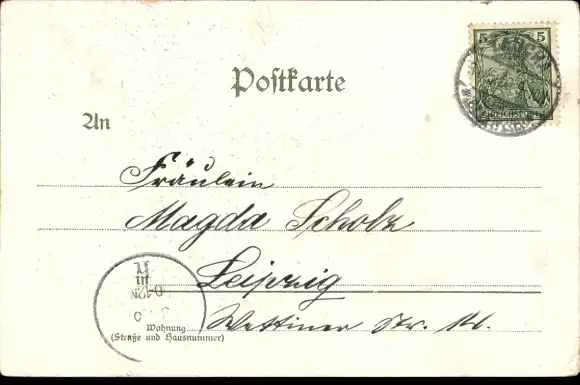 5 5
Postkarte
An
Fräulein
Magda Scholz
Leipzig
Wohnung
(Straße und Hausnummer)
Wettiner Str.